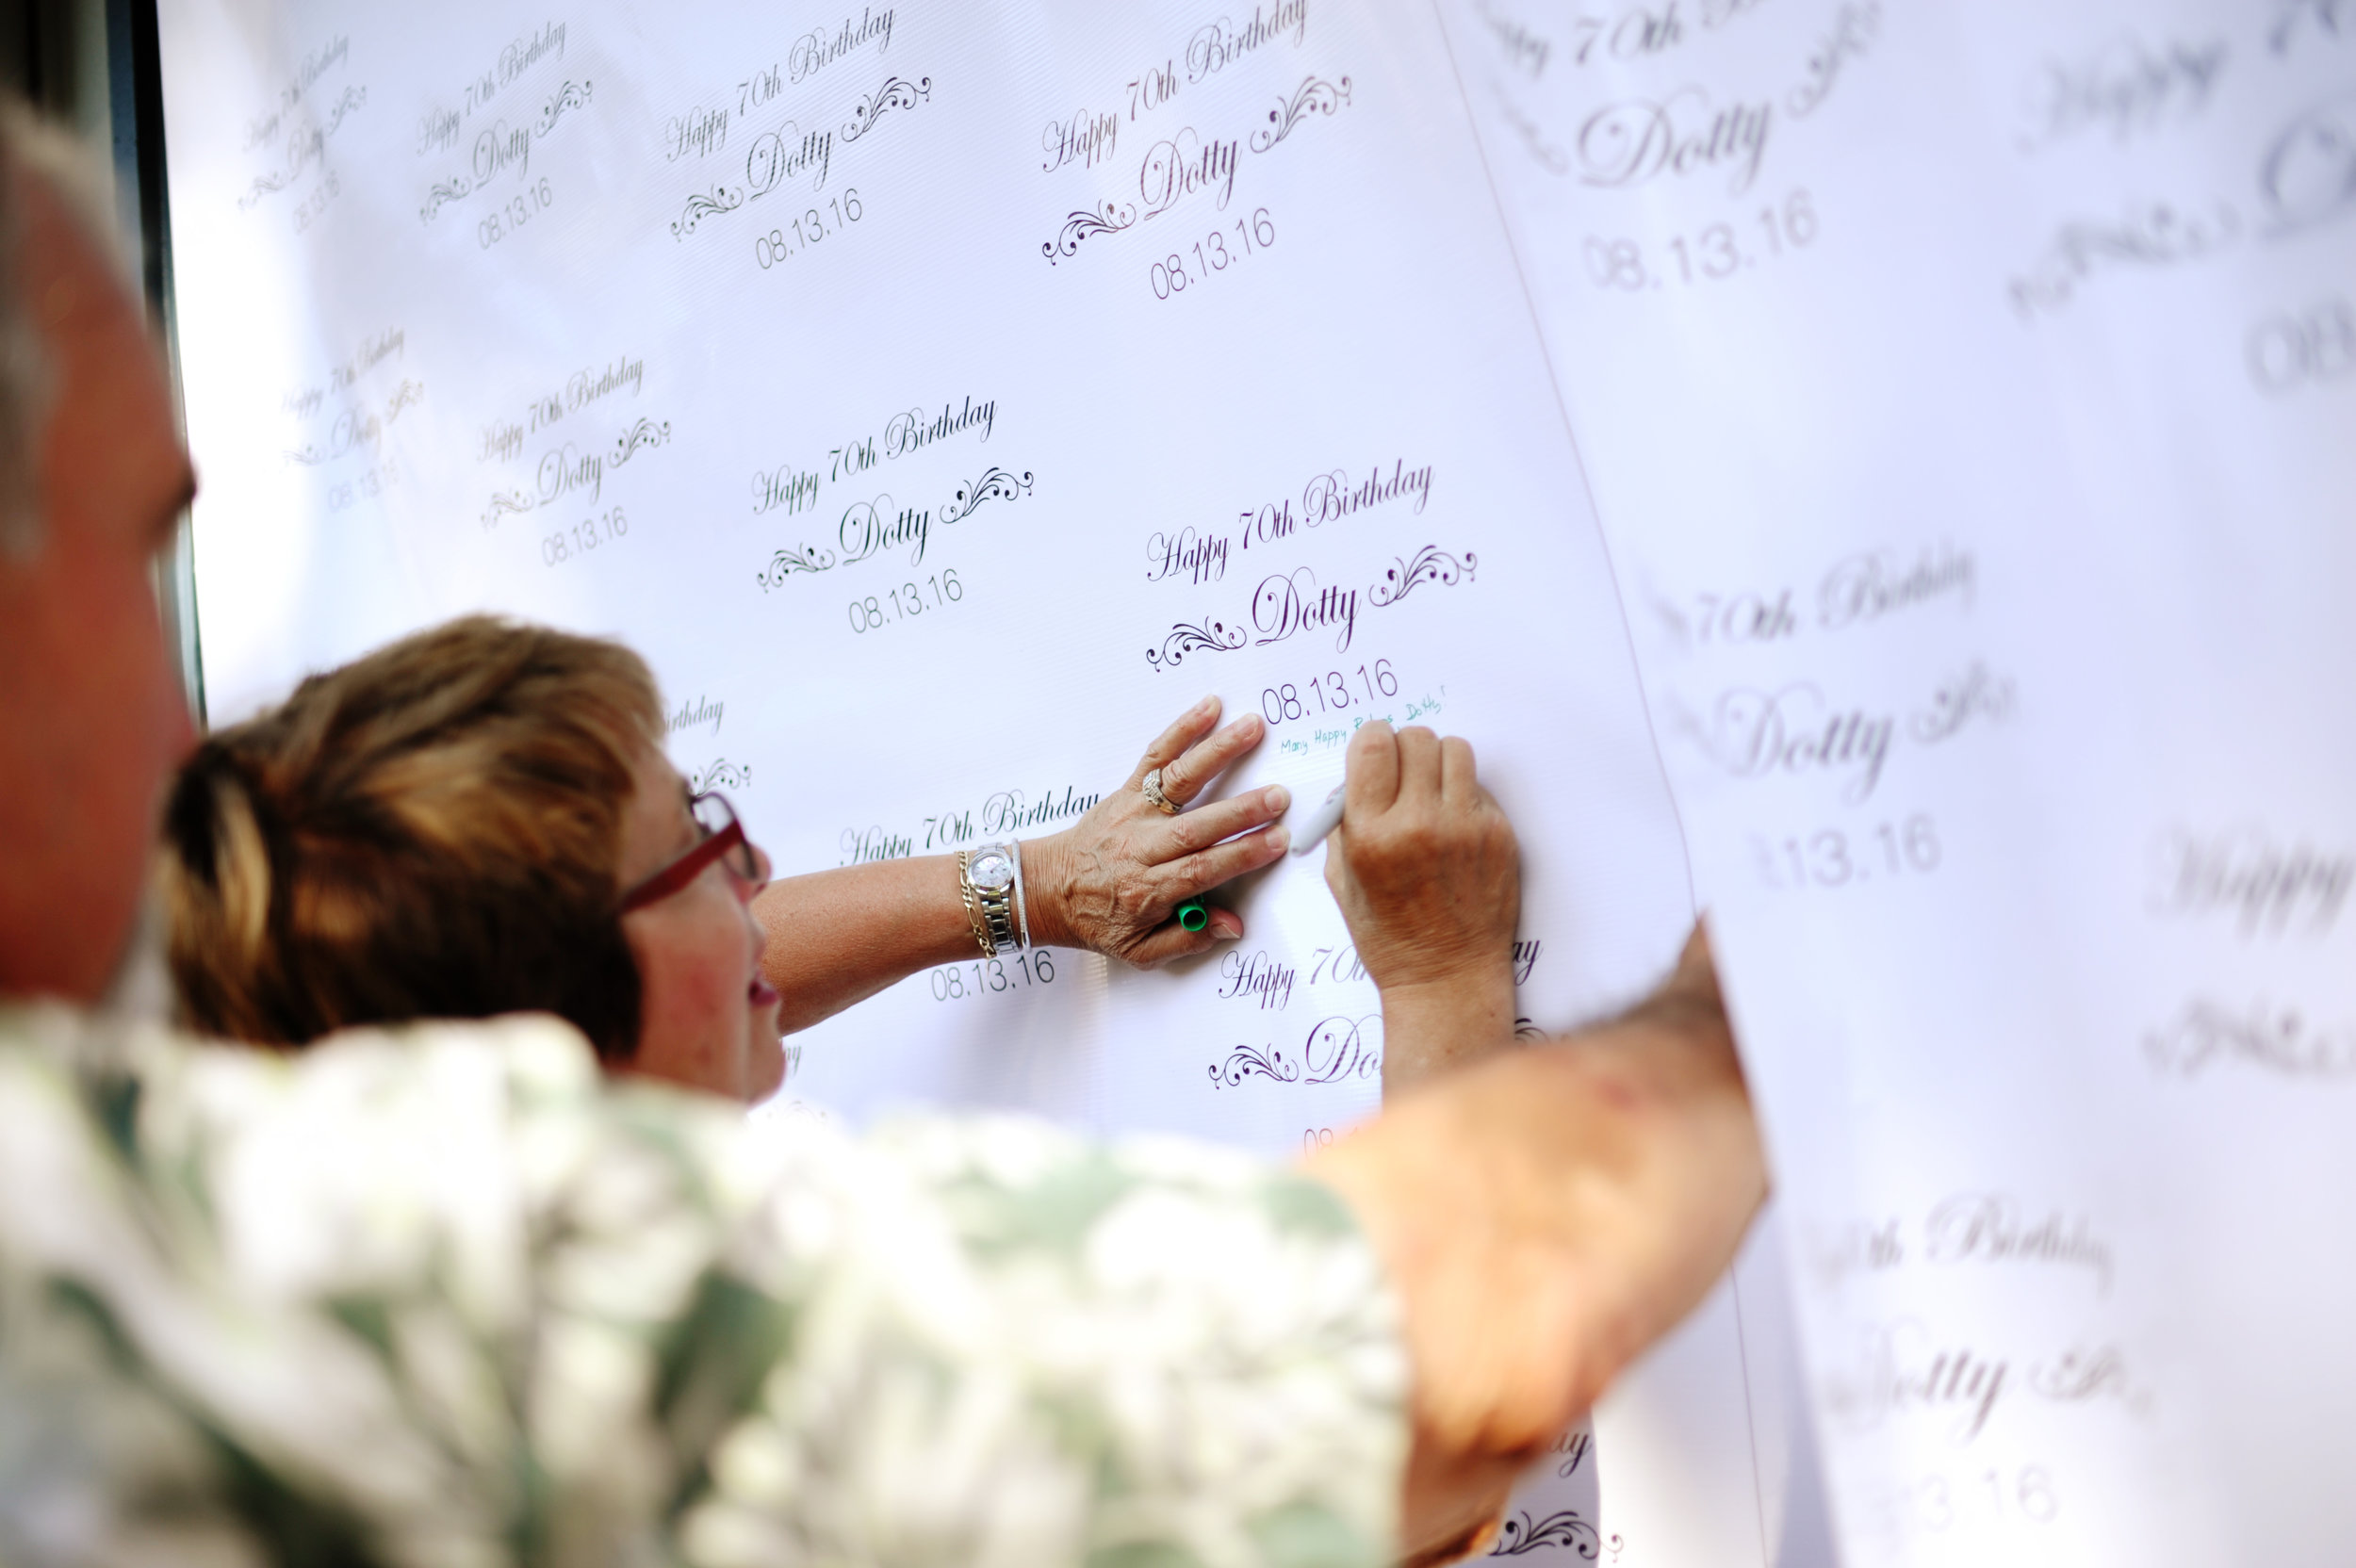 Happy 70th Birthday
Dotty
08.13.16
Happy 70th Birthday
Dotty
08.13.16
Happy 70th Birthday
Dotty
08.13.16
Happy 70th Birthday
Dotty
08.13.16
70th
Dotty
08.13.16
Happy
08
Happy 70th Birthday
Dotty
08.13.16
Happy 70th Birthday
Dotty
08.13.16
Happy 70th Birthday
Dotty
08.13.16
Happy 70th Birthday
Dotty
08.13.16
Many Happy Dotty!
70th Birthday
Dotty
13.16
irthday
Happy 70th Birthday
08.13.16
Happy 70th ay
Do
08
Happy
th Birthday
otty
3 16
ay